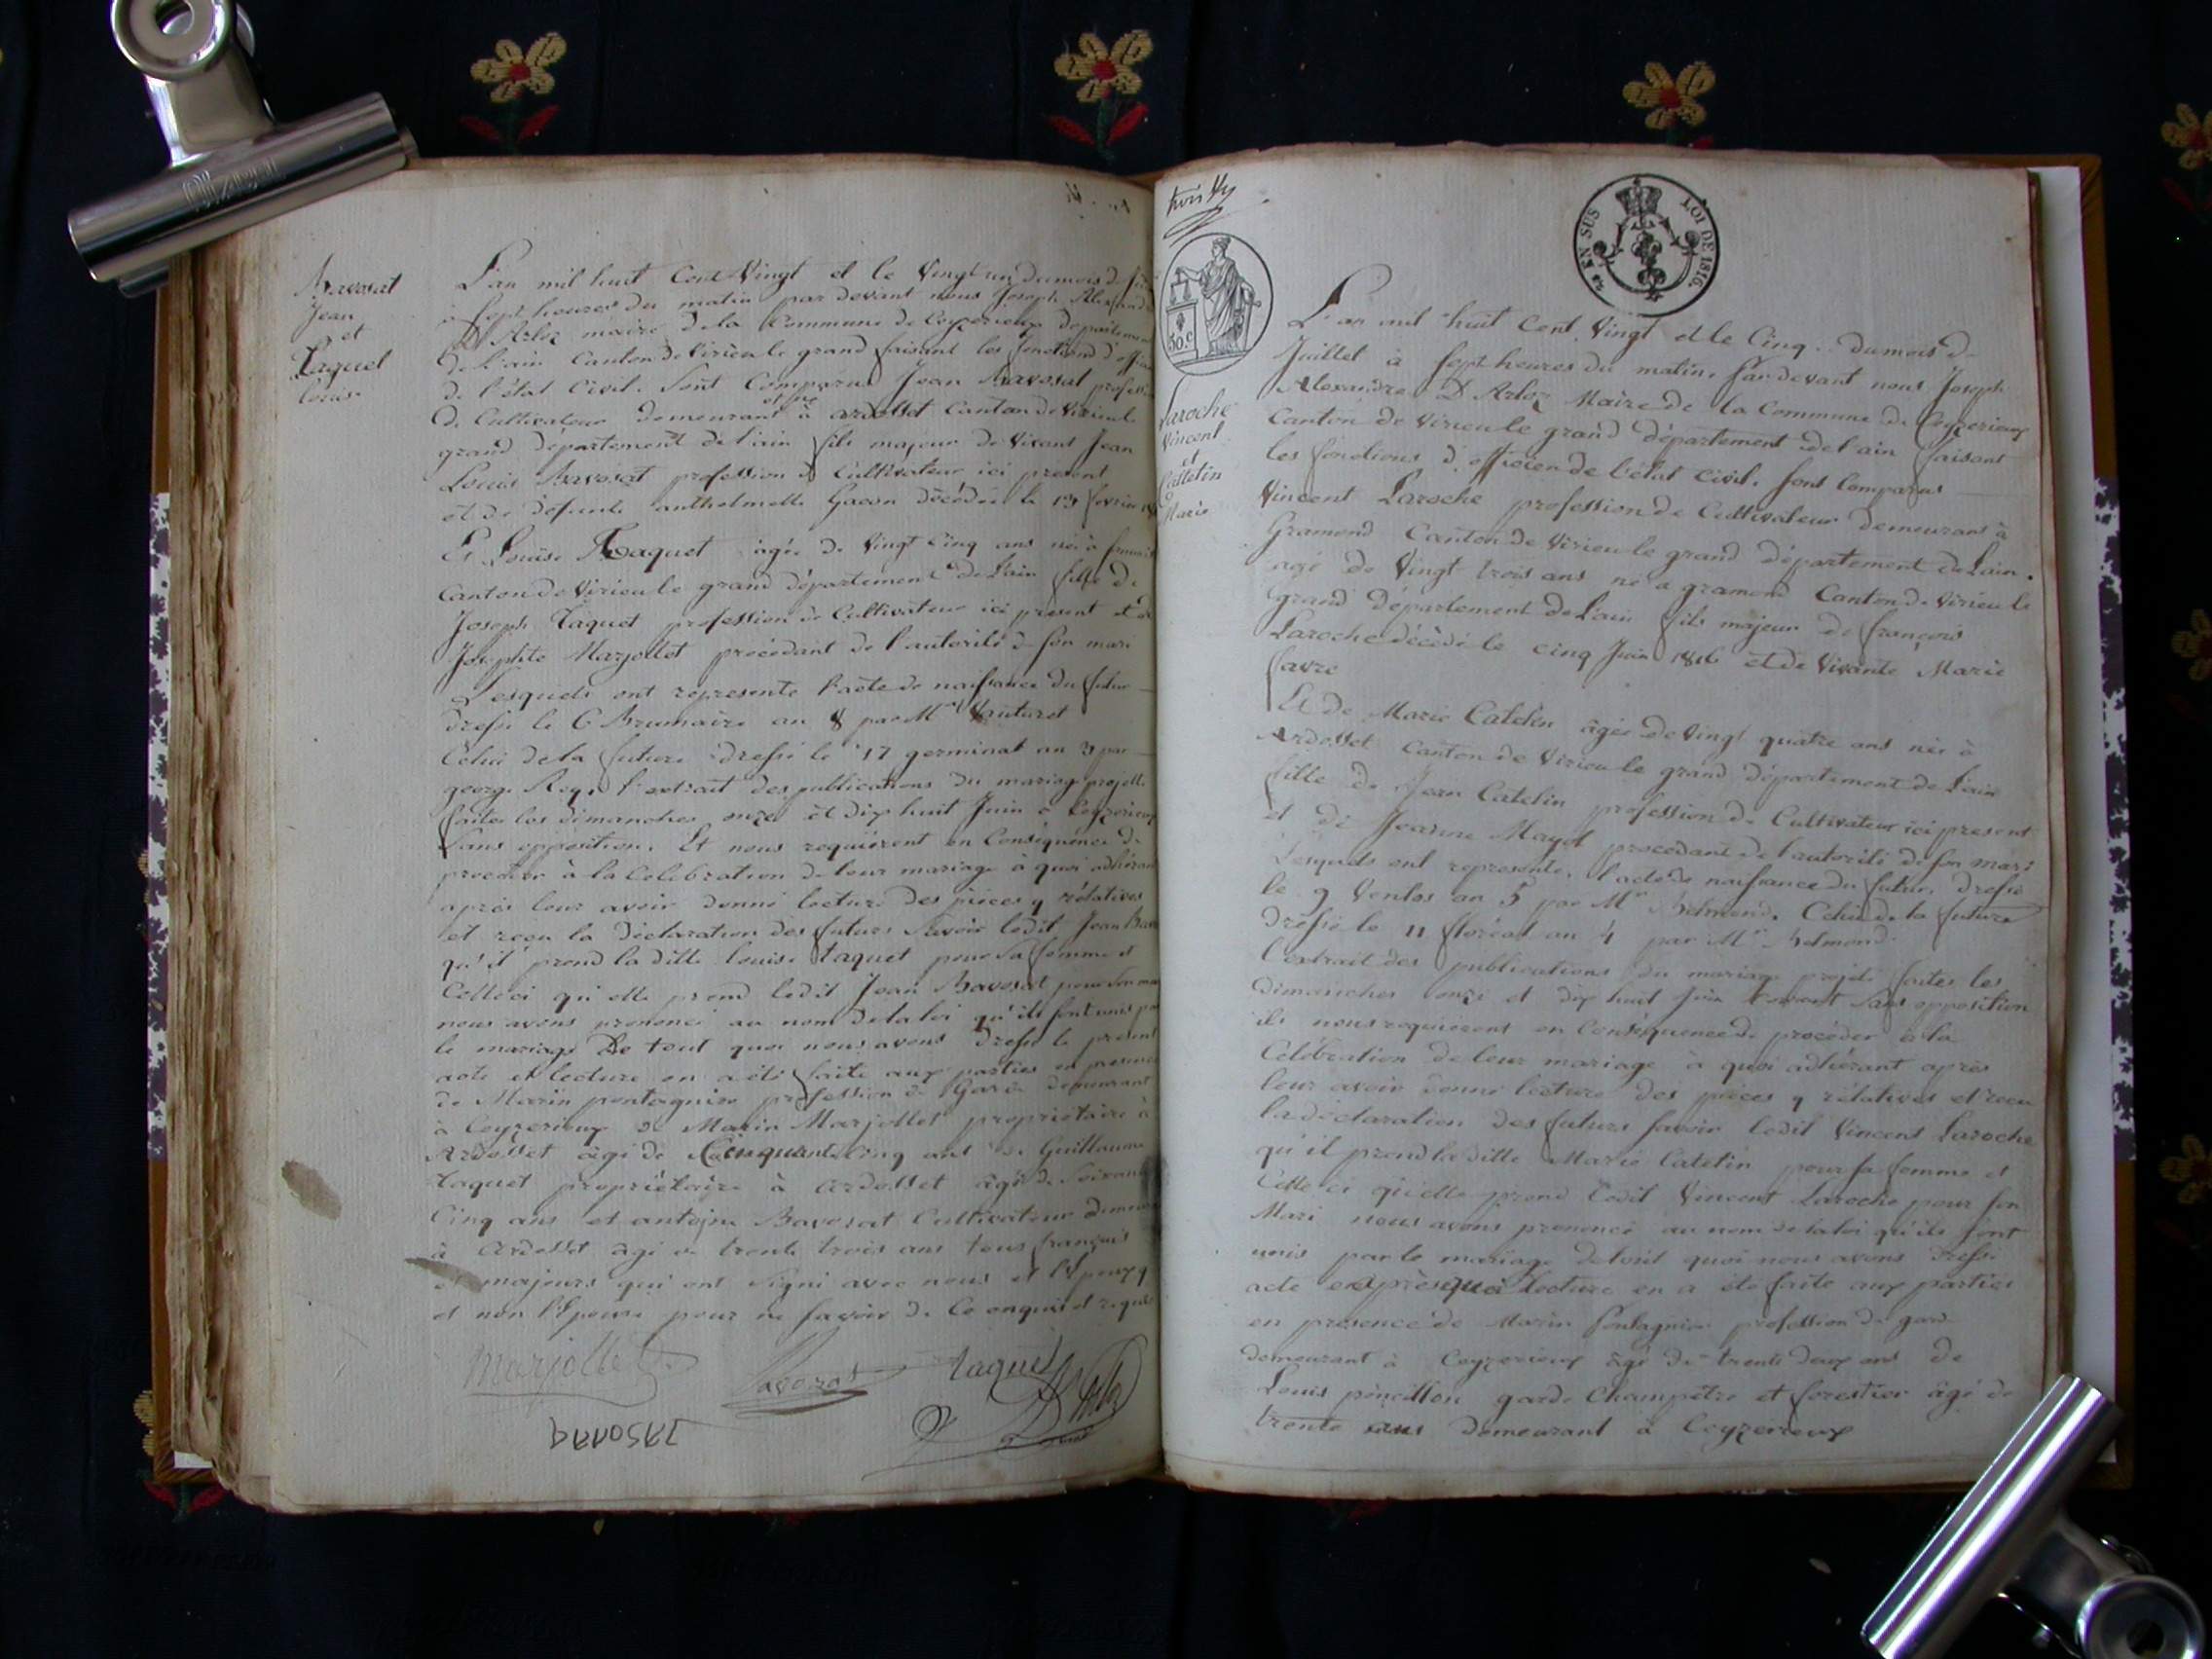 Bavosat
Jean
et
Taquet
louise
L'an mil huit Cent Vingt et le Vingt un du mois de
à Sept heures du matin par devant nous Joseph Alexandre
D'Arloz maire de la Commune de Ceyzerieux département
de l'ain Canton de Virieu le grand faisant les fonctions d'
de l'état Civil. Sont Comparus Jean Bavosat
de Cultivateur demeurant et né à ardosset Canton de Virieu le
grand département de l'ain fils majeur de Vivant Jean
Louis Bavosat profession de Cultivateur ici present
et de défunte anthelmette Gacon décédée le 13 fevrier
Et Louise Taquet agée de Vingt cinq ans née à
Canton de Virieu le grand département de L'ain fille de
Joseph Taquet profession de Cultivateur ici present et de
Josephte Marjollet procédant de l'autorité de son mari
Lesquels ont représenté l'acte de naissance du futur
dressé le 6 Brumaire an 8 par Mr
Celui de la future dressé le 17 germinal an 3 par
george Rey, l'extrait des publications du mariage projetté
faites les dimanches onze et dix huit Juin à Ceyzerieux
sans opposition. Et nous requièrent en Conséquence de
procéder à la Célébration de leur mariage à quoi adhérant
après leur avoir donné lecture des pièces y rélatives
et recu la déclaration des futurs Savoir ledit Jean
qu'il prend la ditte louise taquet pour Sa femme et
Celle ci qu'elle prend ledit Jean Bavosat pour son
nous avons prononcé au nom de la loi qu'ils sont unis
le mariage De tout quoi nous avons dressé le present
acte et lecture en a été faite aux parties en
de Marin pontagnier profession de Garde demeurant
à Ceyzerieux de Marin Marjollet propriétaire à
Ardosset âgé de Cinquante cinq ans de Guillaume
taquet propriétaire à Ardosset âgé de Soixante
Cinq ans et antoine Bavosat Cultivateur
à Ardosset agé de trente trois ans tous français
et majeurs qui ont Signé avec nous et l'Epoux
et non l'Epouse pour ne savoir de Ce enquis et requis
Marjollet
Bavozat
taquet
D'Arloz
BAVOSAT
trois
EN SUS
LOI DE 1816.
50.c
Laroche
Vincent
et
Catletin
Marie
L'an mil huit Cent Vingt et le Cinq du mois de
Juillet à sept heures du matin. Par devant nous Joseph
Alexandre D'Arloz Maire de la Commune de Ceyzerieux
Canton de Virieu le grand département de l'ain faisant
les fonctions d'officier de l'état Civil. sont Comparus
Vincent Laroche profession de Cultivateur demeurant à
Gramond Canton de Virieu le grand département de L'ain.
agé de Vingt trois ans né à gramond Canton de Virieu le
grand département de L'ain fils majeur de françois
Laroche décédé le cinq Juin 1816 et de Vivante Marie
favre
Et de Marie Catelin âgée de Vingt quatre ans née à
Ardosset Canton de Virieu le grand département de L'ain
fille de Jean Catelin profession de Cultivateur ici present
et de Jeanne Mayet procedant de l'autorité de son mari
Lesquels ont représenté, l'acte de naissance du futur, dressé
le 9 Ventos an 5 par Mr Belmond. Celui de la future
dressé le 11 floréal an 4 par Mr Belmond.
l'extrait des publications du mariage projeté faites les
dimanches onze et dix huit Juin Courant Sans opposition
ils nous requièrent en Conséquence de procéder à la
Célébration de leur mariage à quoi adhérant après
leur avoir donné lecture des pièces y rélatives et recu
la déclaration des futurs savoir ledit Vincent Laroche
qu'il prend la ditte Marie Catelin pour sa femme et
Celle ci qu'elle prend ledit Vincent Laroche pour son
Mari nous avons prononcé au nom de la loi qu'ils sont
unis par le mariage de tout quoi nous avons dressé
acte et après quoi lecture en a été faite aux parties
en présence de Marin Pontagnier profession de garde
demeurant à Ceyzerieux âgé de trente deux ans de
Louis péncillon garde Champêtre et forestier âgé de
trente ans demeurant à Ceyzerieux